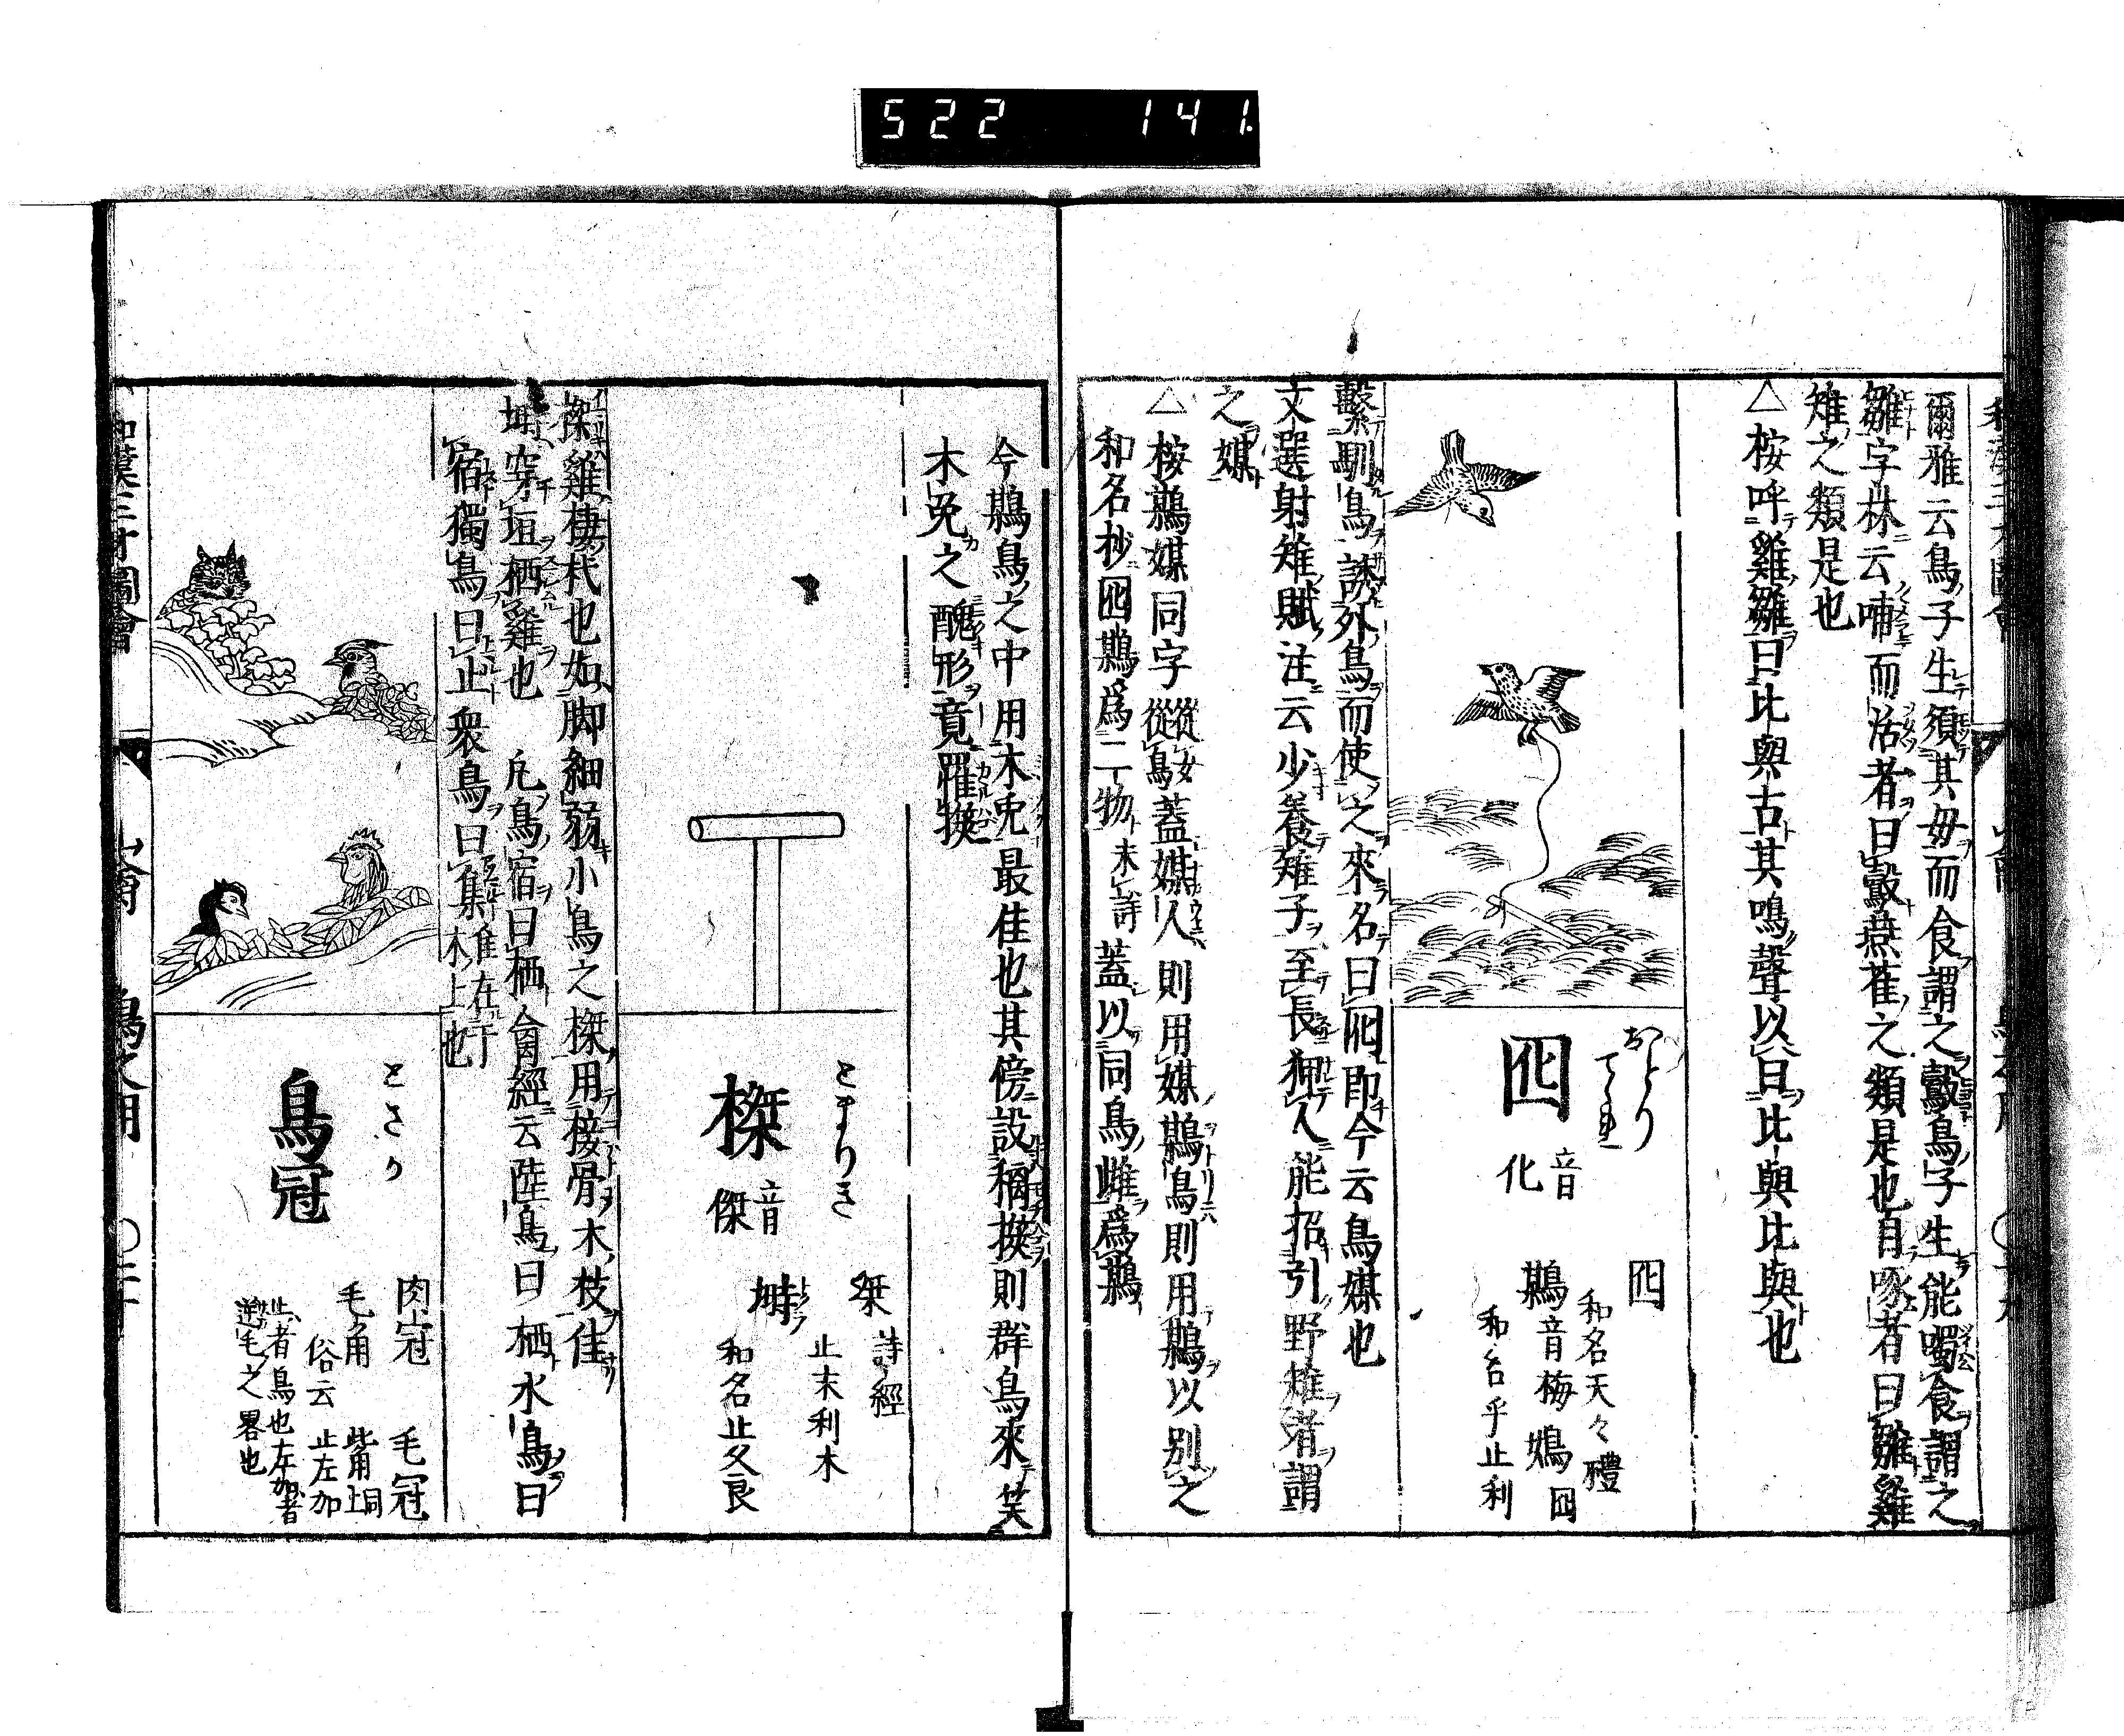 522 141.
爾雅云鳥子生須其母而食謂之鷇鳥子生能噣食謂之
雛字林云哺而活者曰鷇燕雀之類是也自啄者曰雛雞
雉之類是也
△桉呼雞雛曰比與古其鳴聲以曰比與比與也
おとり
囮
音
化
囮
和名天々禮
鷏音梅鴆囮
和名乎止利
繫馴鳥誘外鳥而使之來名曰囮即今云鳥媒也
文選射雉賦注云少養雉子至長狎人能招引野雉者謂
之媒
△桉鷏媒同字從女從鳥蓋媒人則用媒鷏鳥則用鷏以別之
和名抄囮鷏爲二物未詳蓋以同鳥雌爲鷏
今鷏鳥之中用木兎最佳也其傍設䅨擌則群鳥來笑
木兎之醜形竟罹擌
とまりき
榤
音
傑
桀 詩經
止末利木
塒
和名止久良
榤雞棲杙也如脚細弱小鳥之榤用接骨木枝佳
塒穿垣栖雞也 凡鳥宿曰栖禽經云陸鳥曰栖水鳥曰
宿獨鳥曰止衆鳥曰集隹在于木上也
とさか
鳥冠
肉冠 毛冠
毛角 觜角同上
俗云 止左加
止者鳥也左加者
逆毛之畧也
和漢三才圖會
山禽
鳥之用